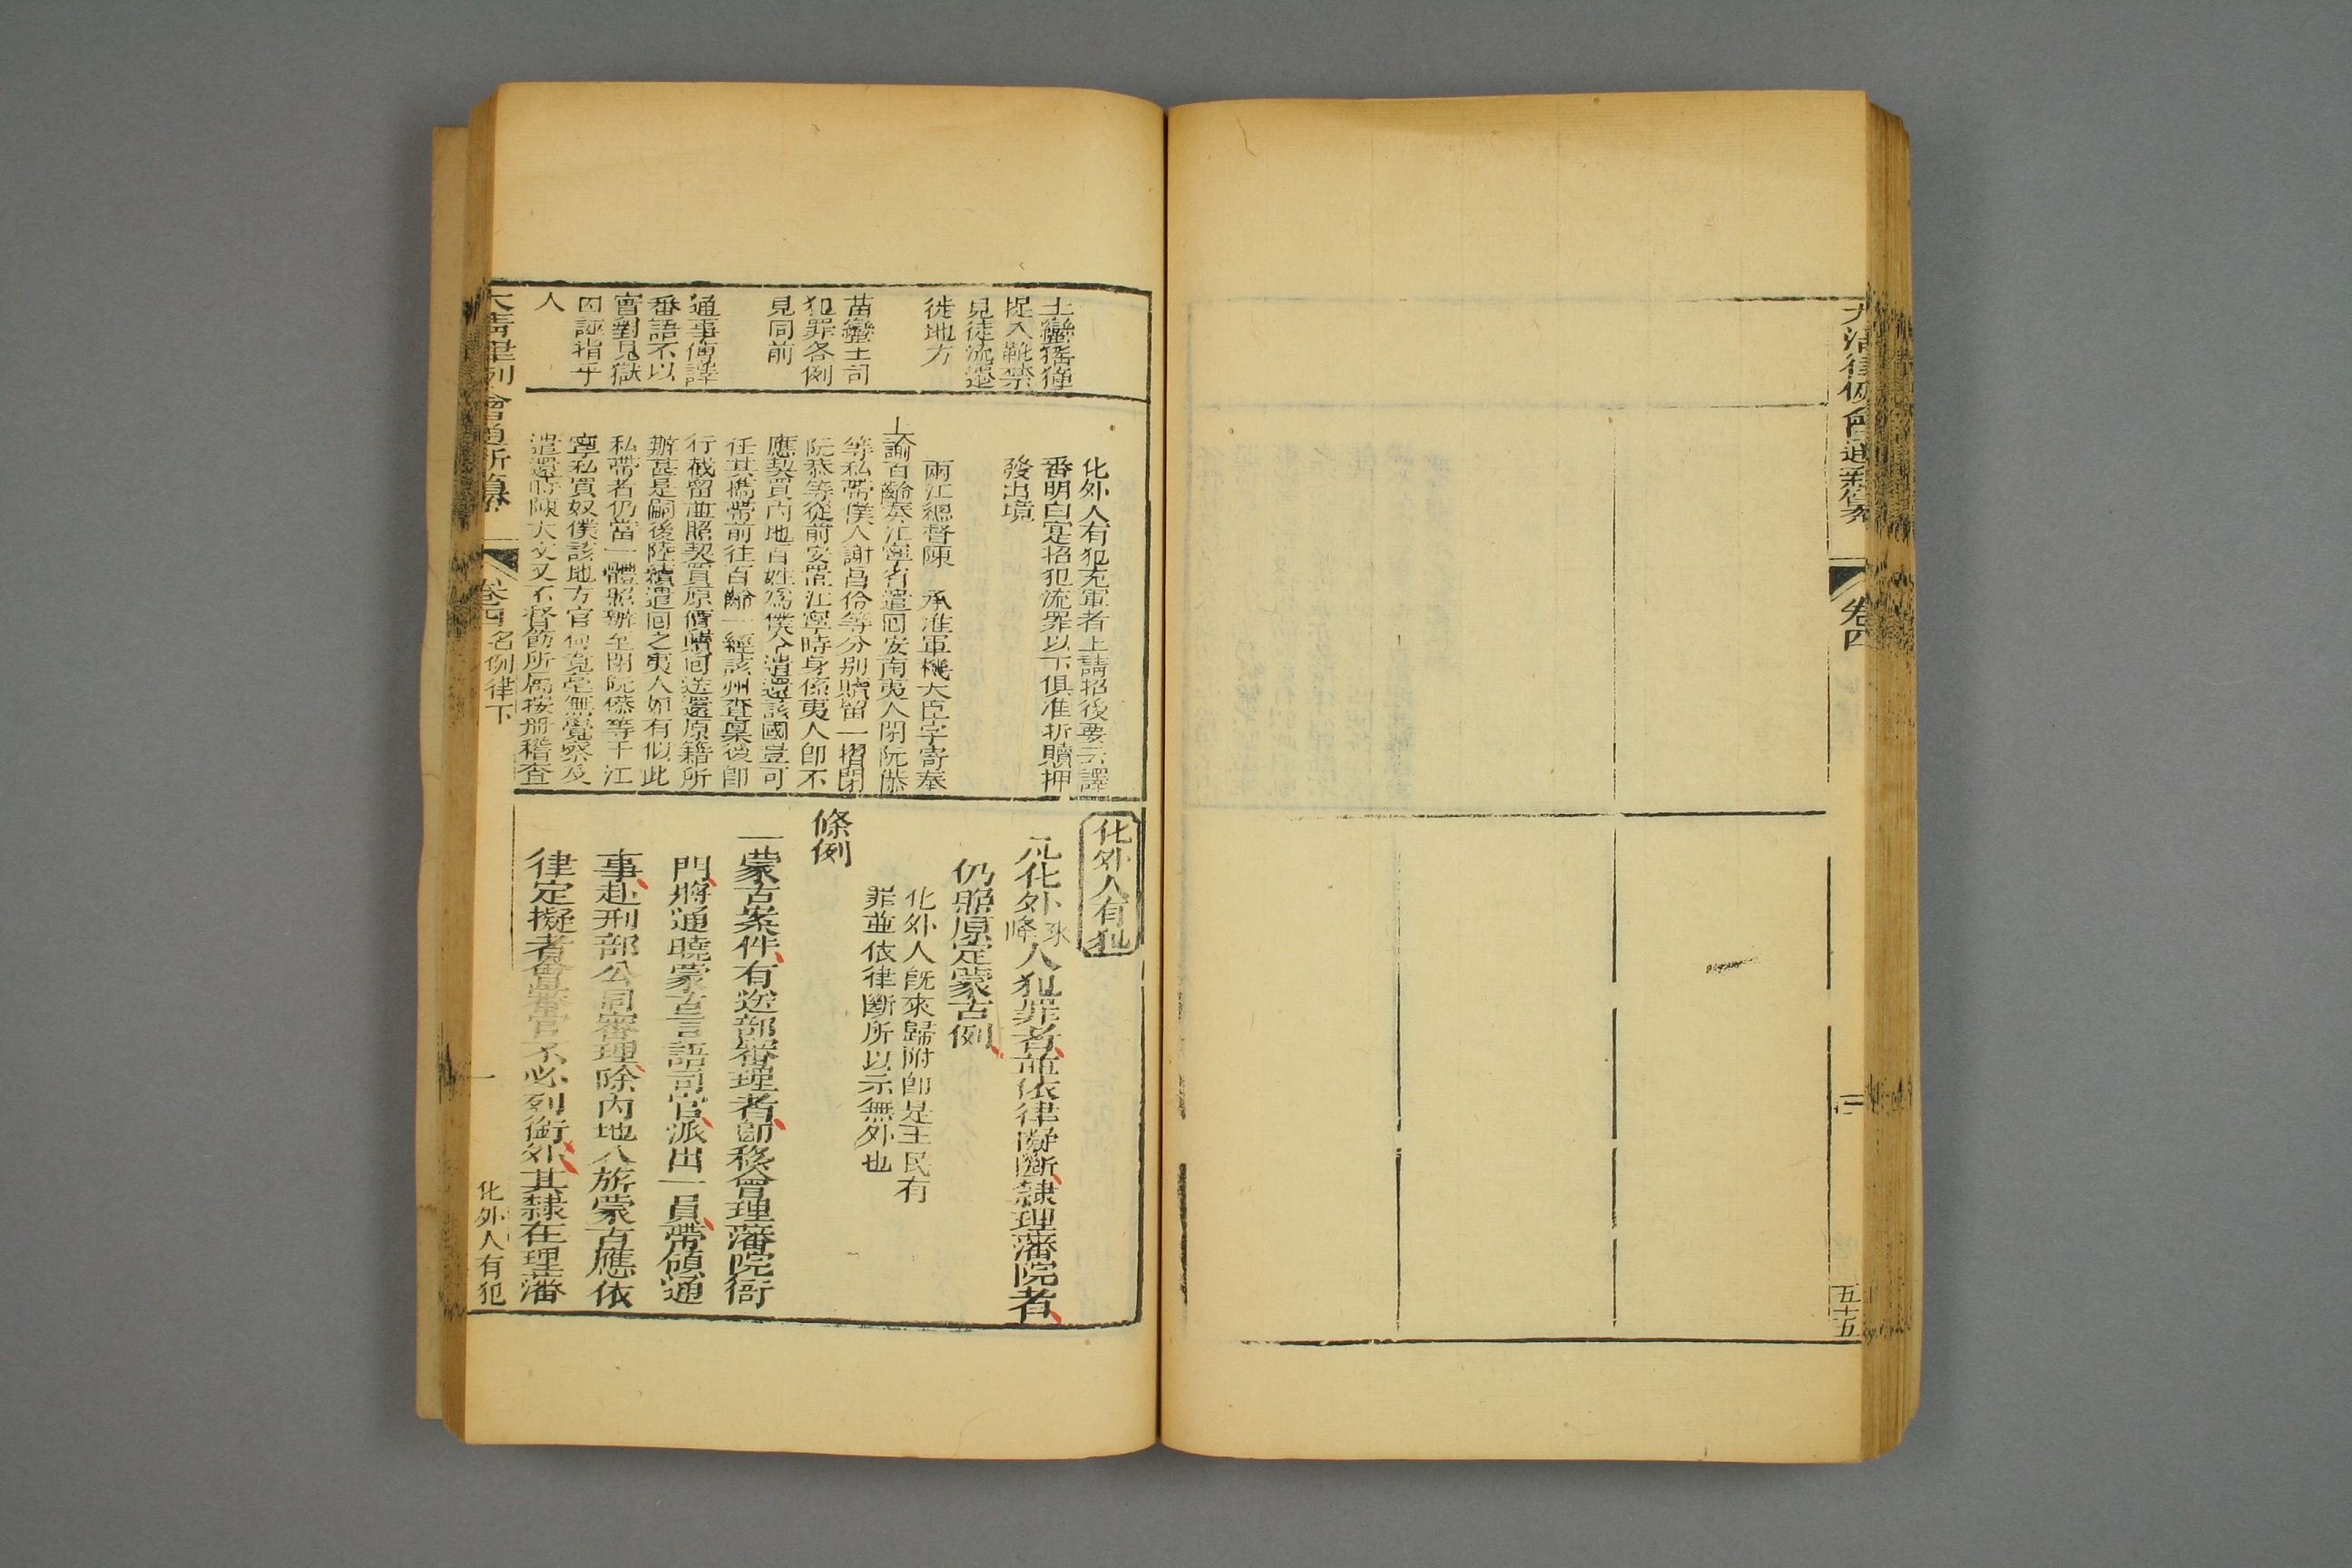 大清律例會通新纂
卷四
二
五十五
土蠻猺獞
捉人勒禁
見徒流遷
徙地方
苗蠻土司
犯罪各例
見同前
通事傳譯
番語不以
實對見獄
囚誣指平
人
化外人有犯充軍者上請招後要云譯
番明白定招犯流罪以下俱准折贖押
發出境
兩江總督陳　承准軍機大臣字寄奉
上諭百齡奏江寧省遣回安南夷人閉阮㳟
等私帶僕人謝昌佮等分别贖留一摺閉
阮㳟等從前安置江寧時身係夷人卽不
應契買內地百姓為僕今遣還該國豈可
任其攜帶前往百齡一經該州查稟後卽
行截留並照契買原價贖回送還原籍所
辦甚是嗣後陸續遣回之夷人如有似此
私帶者仍當一體照辦至閉阮㳟等于江
寧私買奴僕該地方官何竟毫無覺察及
遣還時陳大文又不督飭所屬按冊稽查
化外人有犯
凡化外來降人犯罪者並依律擬斷隸理藩院者
仍照原定蒙古例
化外人旣來歸附卽是王民有
罪並依律斷所以示無外也
條例
一蒙古案件有送部審理者卽移會理藩院衙
門將通曉蒙古言語司官派出一員帶領通
事赴刑部公同審理除內地八旂蒙古應依
律定擬者會審官不必列銜外其隸在理藩
大清律例會通新纂
卷四名例律下
一
化外人有犯